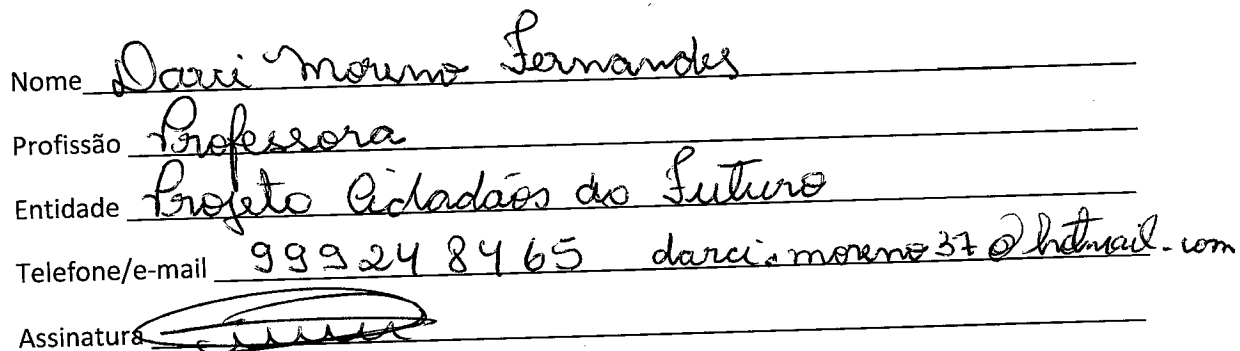 Nome Darci Moreno Fernandes
Profissão Professora
Entidade Projeto Cidadãos do Futuro
Telefone/e-mail 999248465 darci.moreno37@hotmail.com
Assinatura